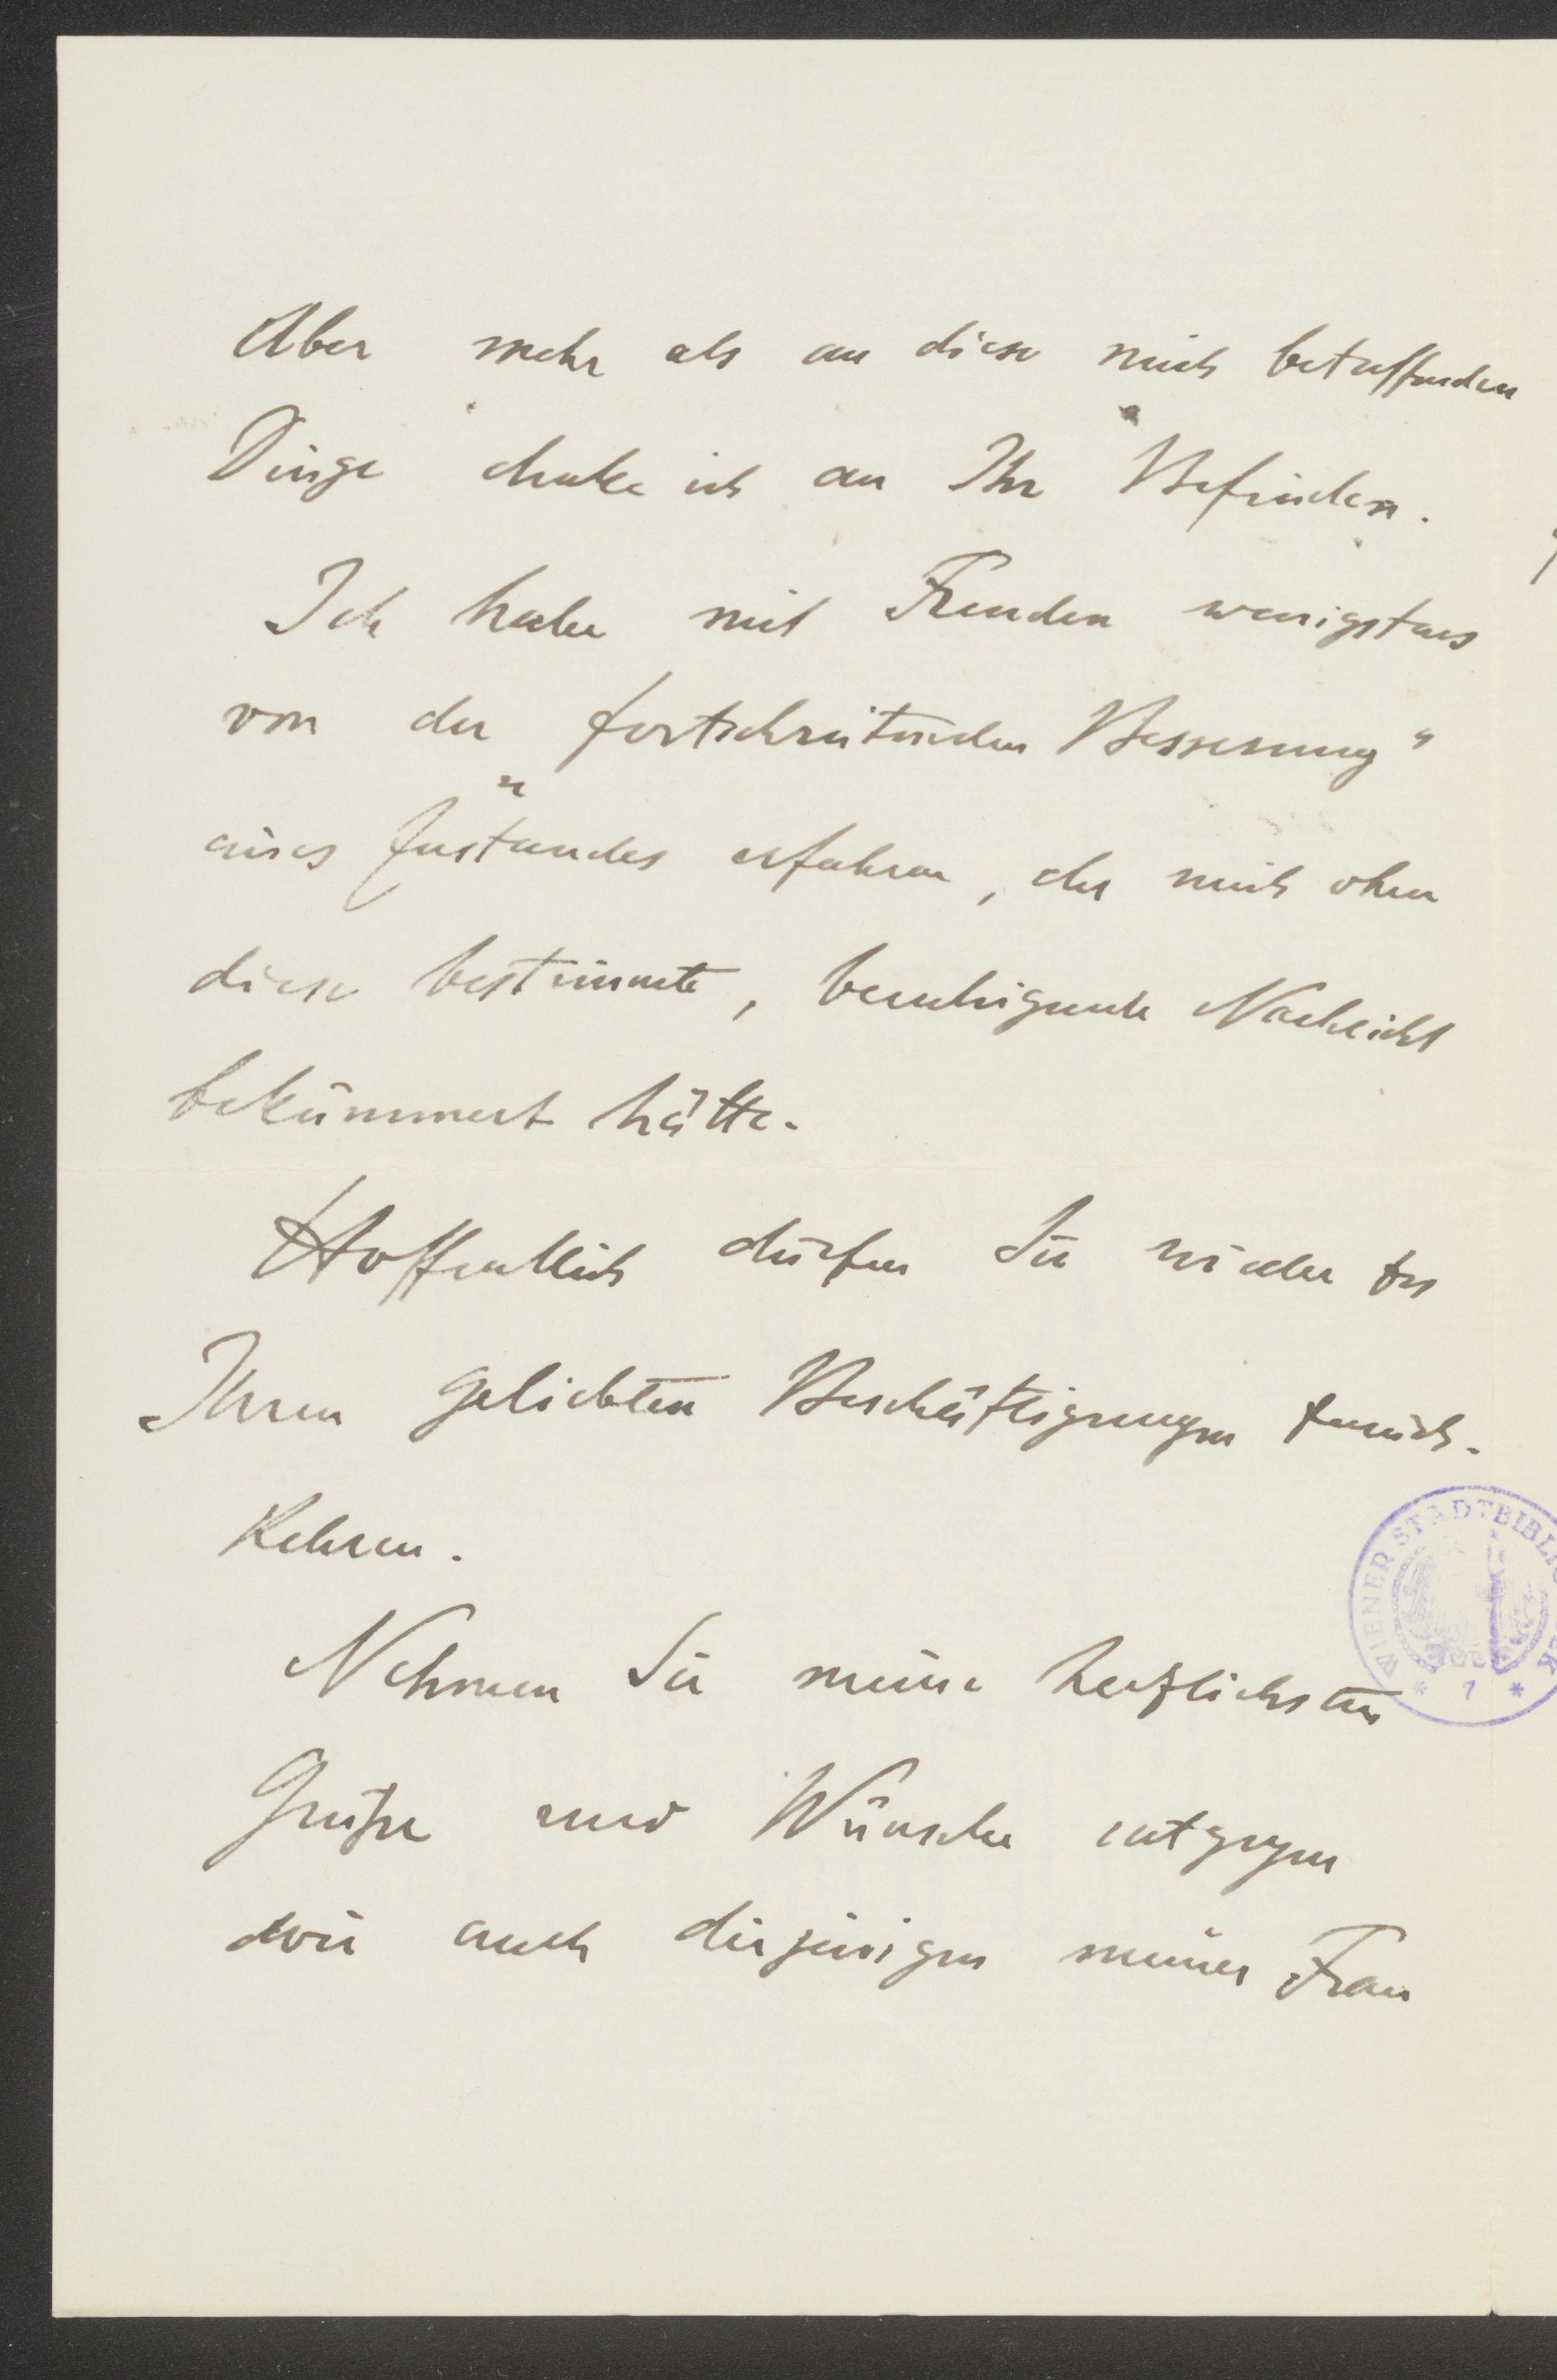 Aber mehr als an diese mich betreffenden
Dinge denke ich an Ihr Befinden.
Ich habe mit Freuden wenigstens
von der „fortschreitenden Besserung“
eines Zustandes erfahren, der mich ohne
diese bestimmte, beruhigende Nachricht
bekümmert hätte.
Hoffentlich dürfen Sie wieder zu
Ihren geliebten Beschäftigungen zurück-
kehren.
WIENER STADTBIBLIO
* 7 *
Nehmen Sie meine herzlichsten
Grüße und Wünsche entgegen
wie auch diejenigen meiner Frau